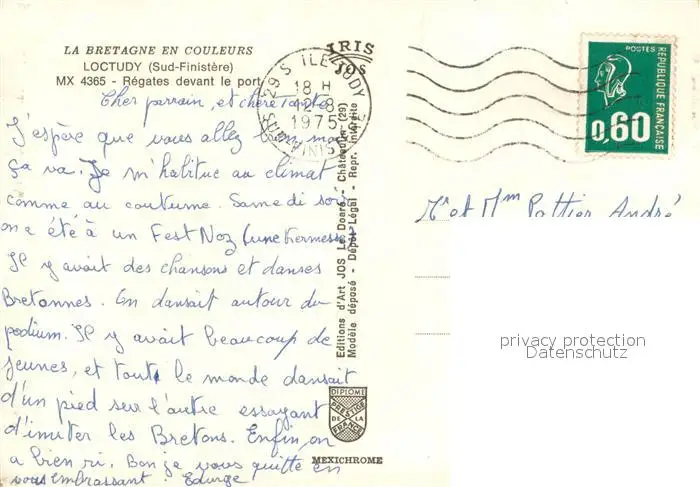 LA BRETAGNE EN COULEURS
LOCTUDY (Sud-Finistère)
MX 4365 - Régates devant le port
IRIS
JOS
29 S ILE TUDY
18 H
12-8
1975
FINISTERE
Cher parrain, et chère Tante
J'espère que vous allez bien, moi
ça va. Je m'habitue au climat
comme au coutume. Samedi soir
on a été à un Fest Noz (une Kermesse)
Il y avait des chansons et danses
Bretonnes. On dansait autour du
podium. Il y avait beaucoup de
jeunes, et toute le monde dansait
d'un pied sur l'autre essayant
d'imiter les Bretons. Enfin, on
a bien ri. Bon je vous quitte en
vous embrassant. Edwige
Editions d'Art JOS Le Doaré - Châteaulin (29)
Modèle déposé - Dépôt Légal - Repr. Interdite
DIPLOME
PRESTIGE
DE LA
FRANCE
MEXICHROME
POSTES
REPUBLIQUE FRANÇAISE
0,60
Mr et Mme Pottier André
privacy protection
Datenschutz